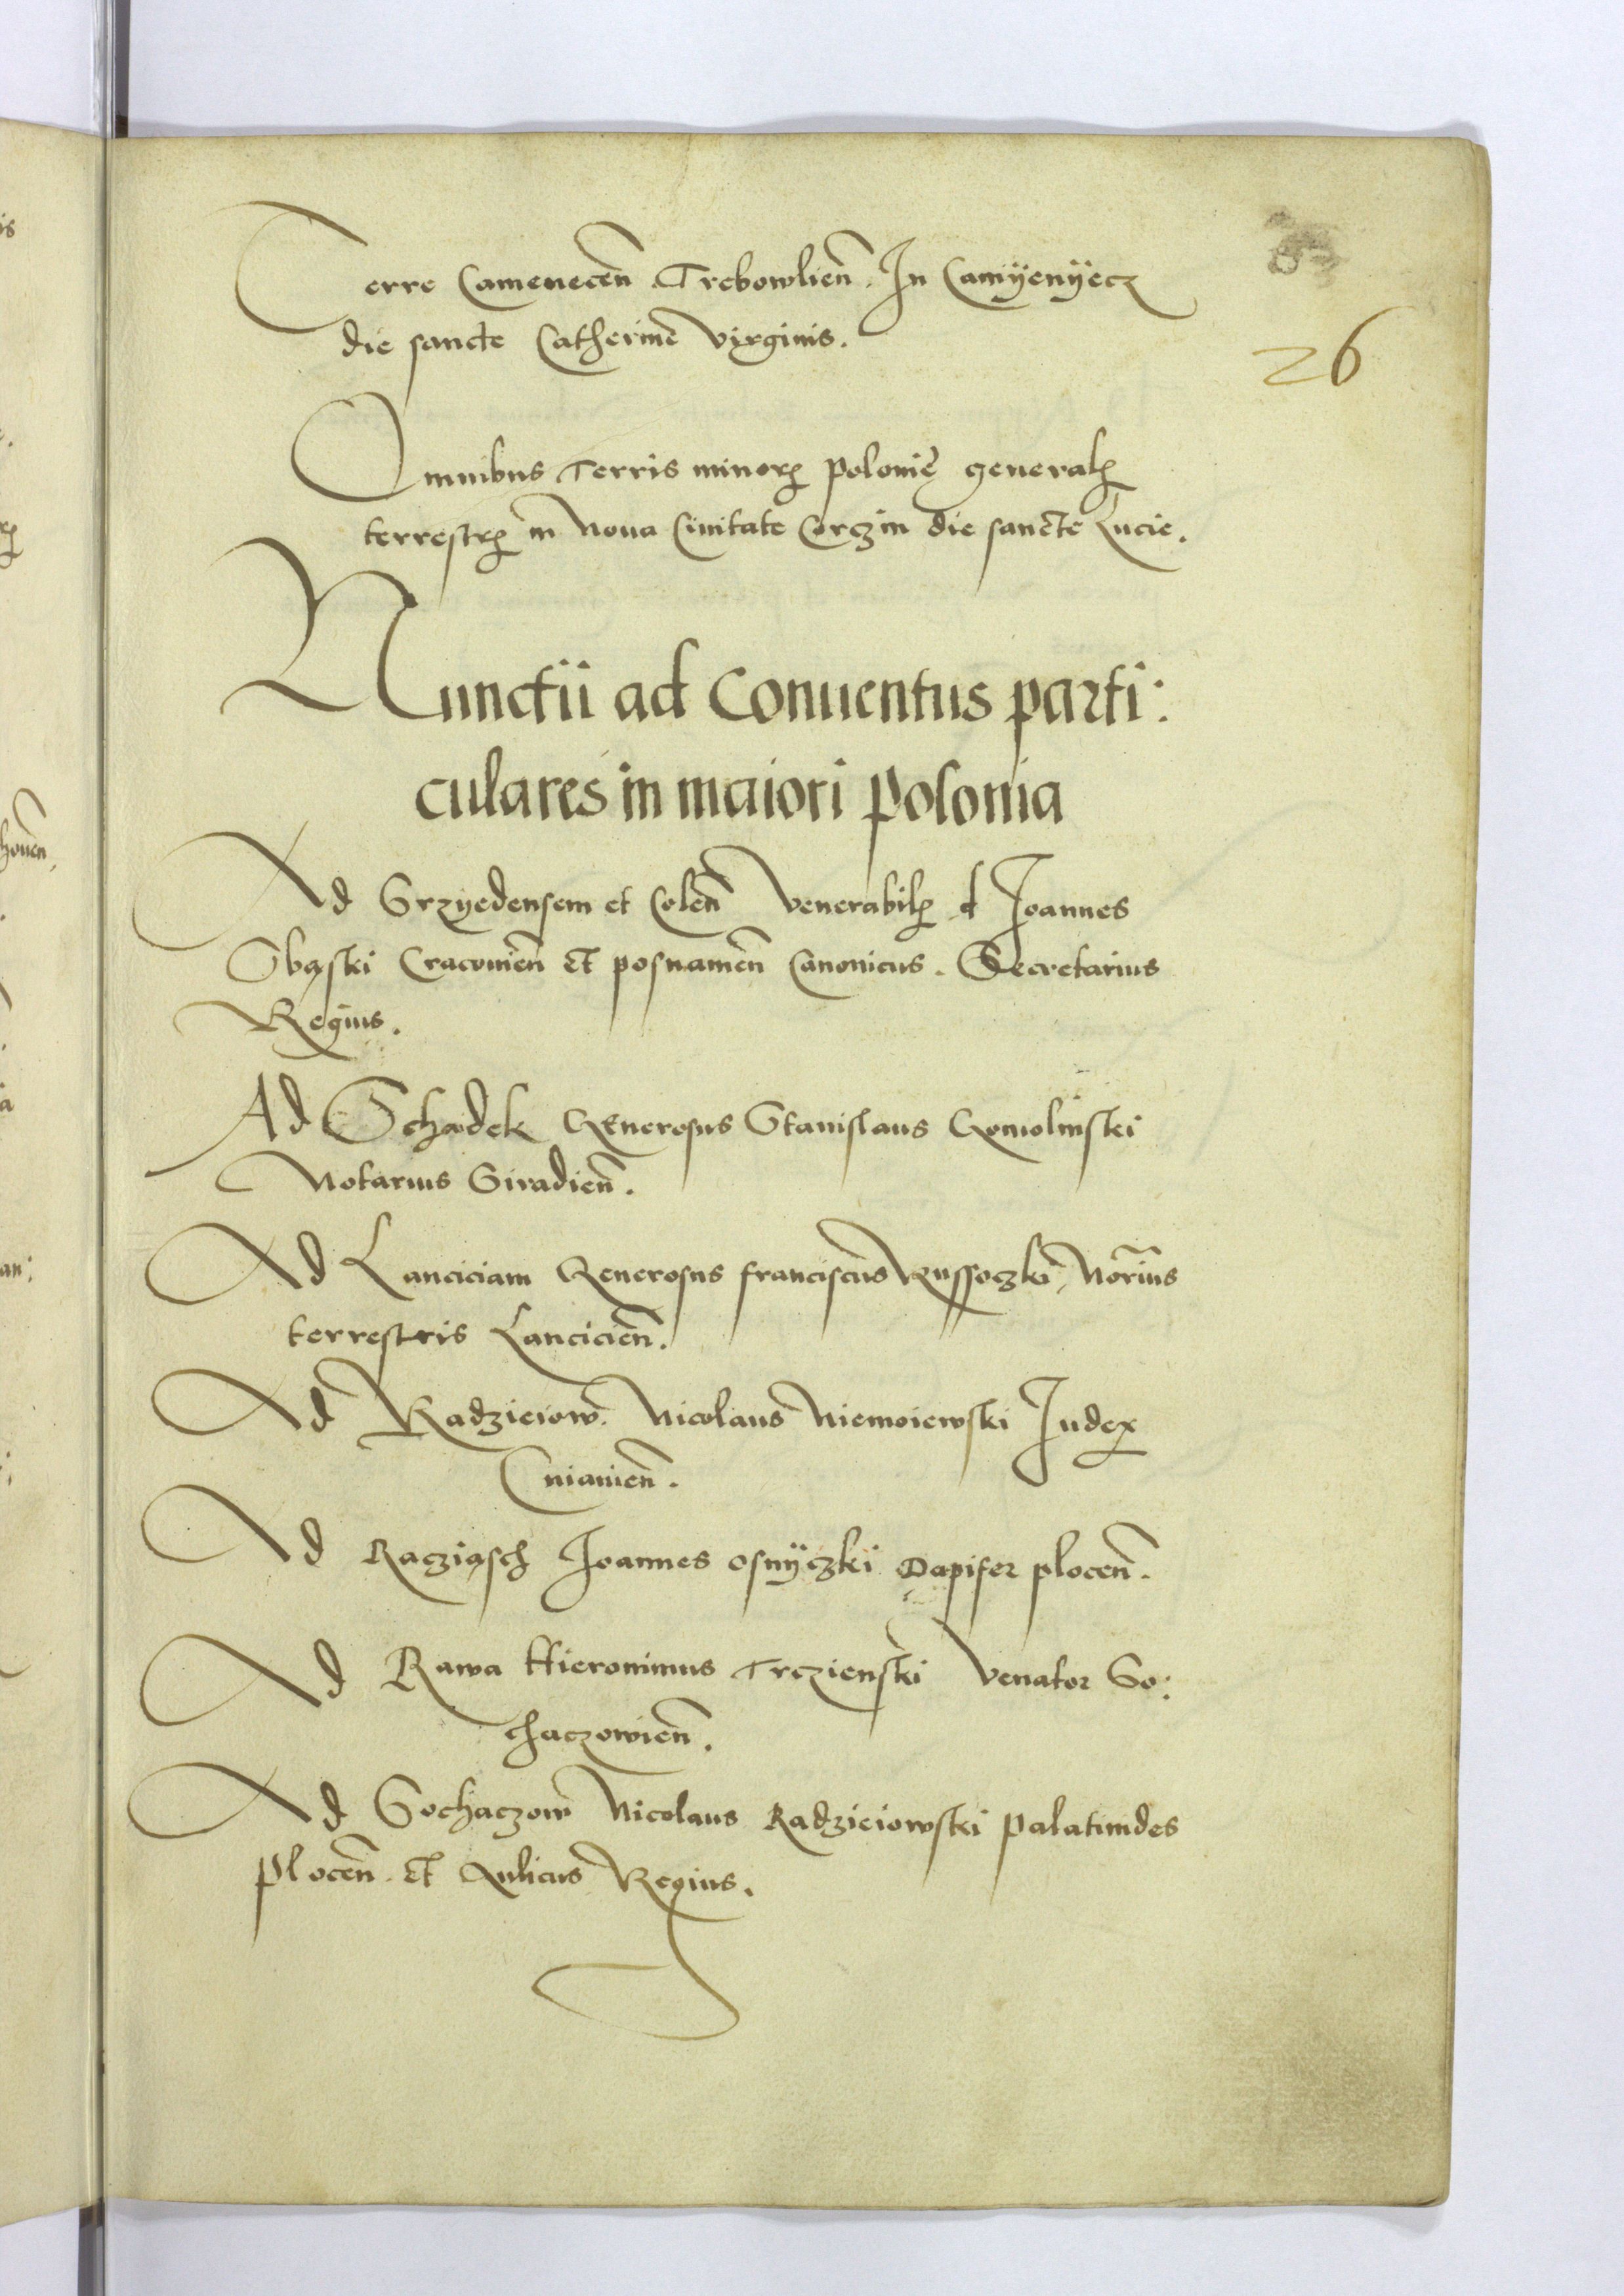 26
Terre Camenecen̄ Trebowlien̄. In Camÿenÿecz
die sancte Catherine Virginis.
Omnibus Terris minorꝭ polonię generalꝭ
terrestrꝭ in Noua Ciuitate Corczin die sancte Lucie.
Nunctii ad Conuentus parti:
culares in maiori polonia
Ad Srzyedensem et Colen̄ Venerabilꝭ d Joannes
Obąski Cracouien̄ et posnanien̄ Canonicus. Secretarius
Regius.
Ad Schadek Generosus Stanislaus Gomolinski
Notarius Siradien̄.
Ad Lanciciam Generosus franciscus Russoczki Norius
terrestris Lancicien̄.
Ad Radzieiow. Nicolaus Niemoiewski Judex
Cuiauien̄.
Ad Racziąsch Joannes osnÿczki Dapifer plocen̄.
Ad Rawa Hieronimus Trczienski Venator So:
chaczowien̄.
Ad Sochaczow Nicolaus Radzieiowski palatinides
plocen̄. et Aulicus Regius.